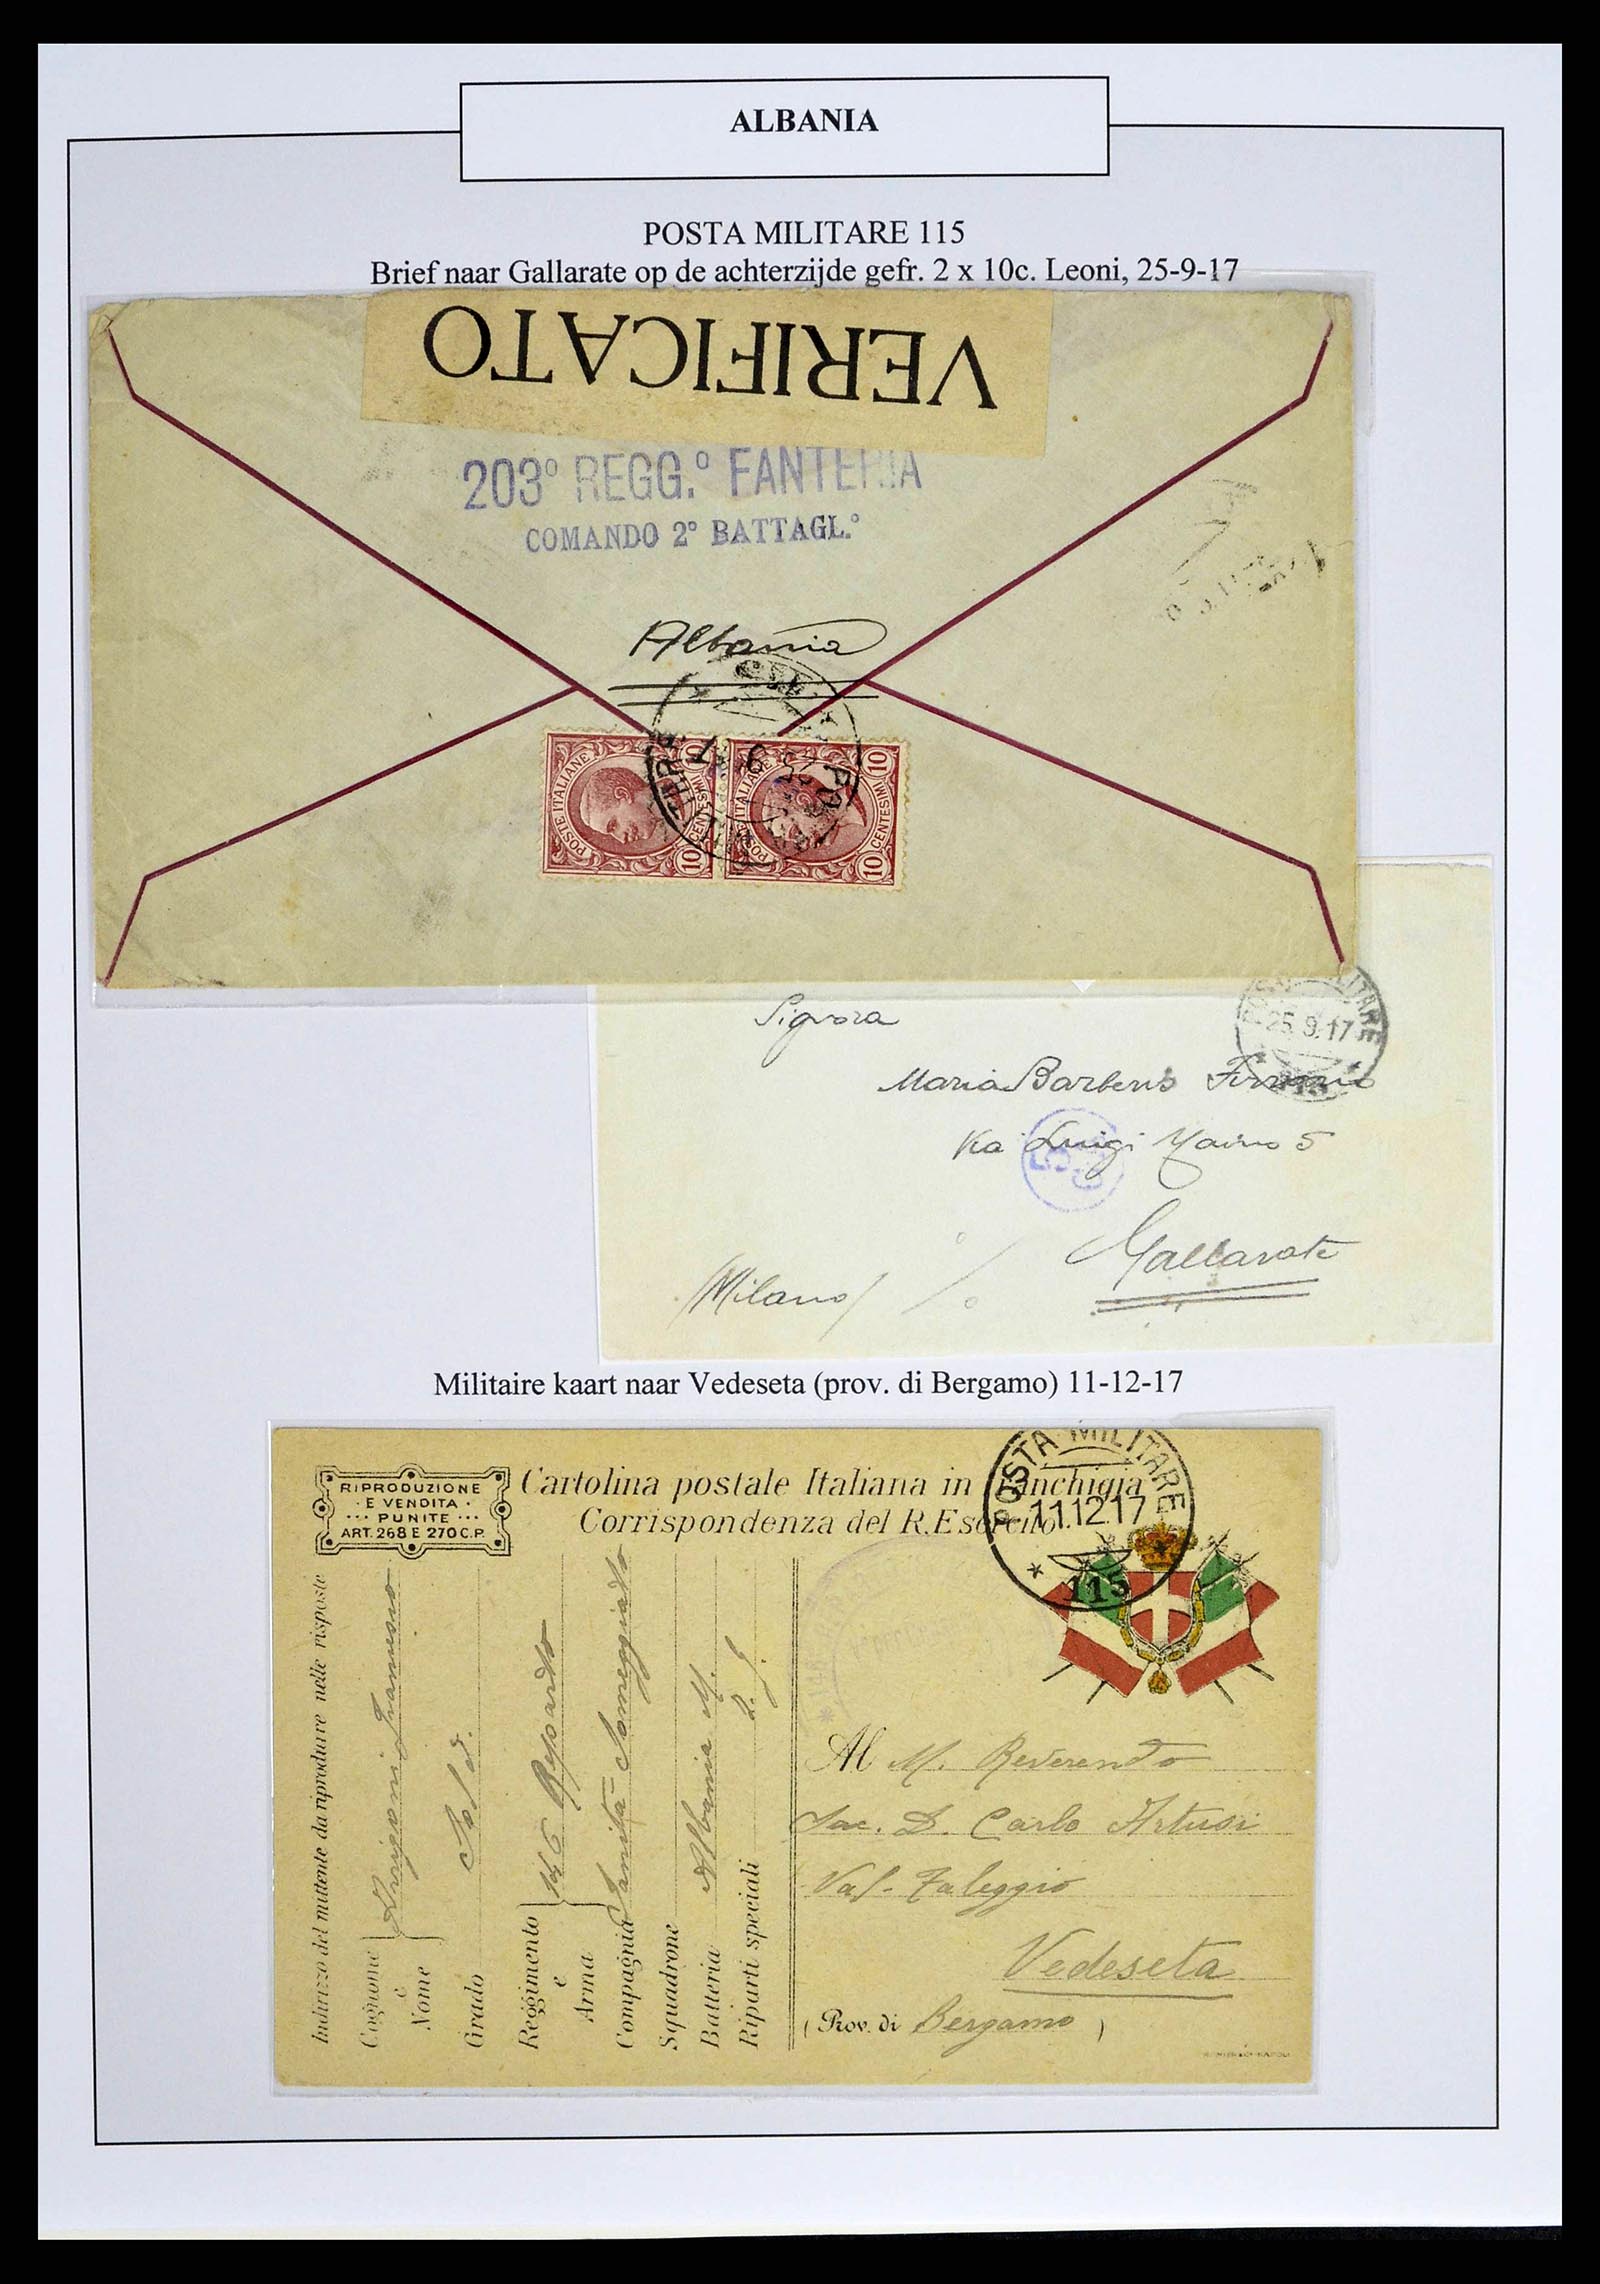 ALBANIA
POSTA MILITARE 115
Brief naar Gallarate op de achterzijde gefr. 2 x 10c. Leoni, 25-9-17
VERIFICATO
203° REGG.° FANTERIA
COMANDO 2° BATTAGL.°
Albania
POSTE ITALIANE
10 CENTESIMI 10
POSTE ITALIANE
10 CENTESIMI 10
POSTA MILITARE
25.9.17
115
Signora
Maria
Via Luigi Maino 5
Gallarate
/Milano/
Militaire kaart naar Vedeseta (prov. di Bergamo) 11-12-17
RIPRODUZIONE
E VENDITA
PUNITE
ART. 268 E 270 C.P.
Cartolina postale Italiana in franchigia
Corrispondenza del R. Esercito
POSTA MILITARE
11.12.17
115
Indirizzo del mittente da riprodurre nelle risposte
Cognome
e
Nome
Grado Sold.
Reggimento
e
Arma
146 Reparto
Compagnia Sanità Someggiato
Squadrone
Batteria Albania M.
Riparti speciali
Al M. Reverendo
Sac. D. Carlo Artusi
Val-Taleggio
Vedeseta
(Prov. di Bergamo)